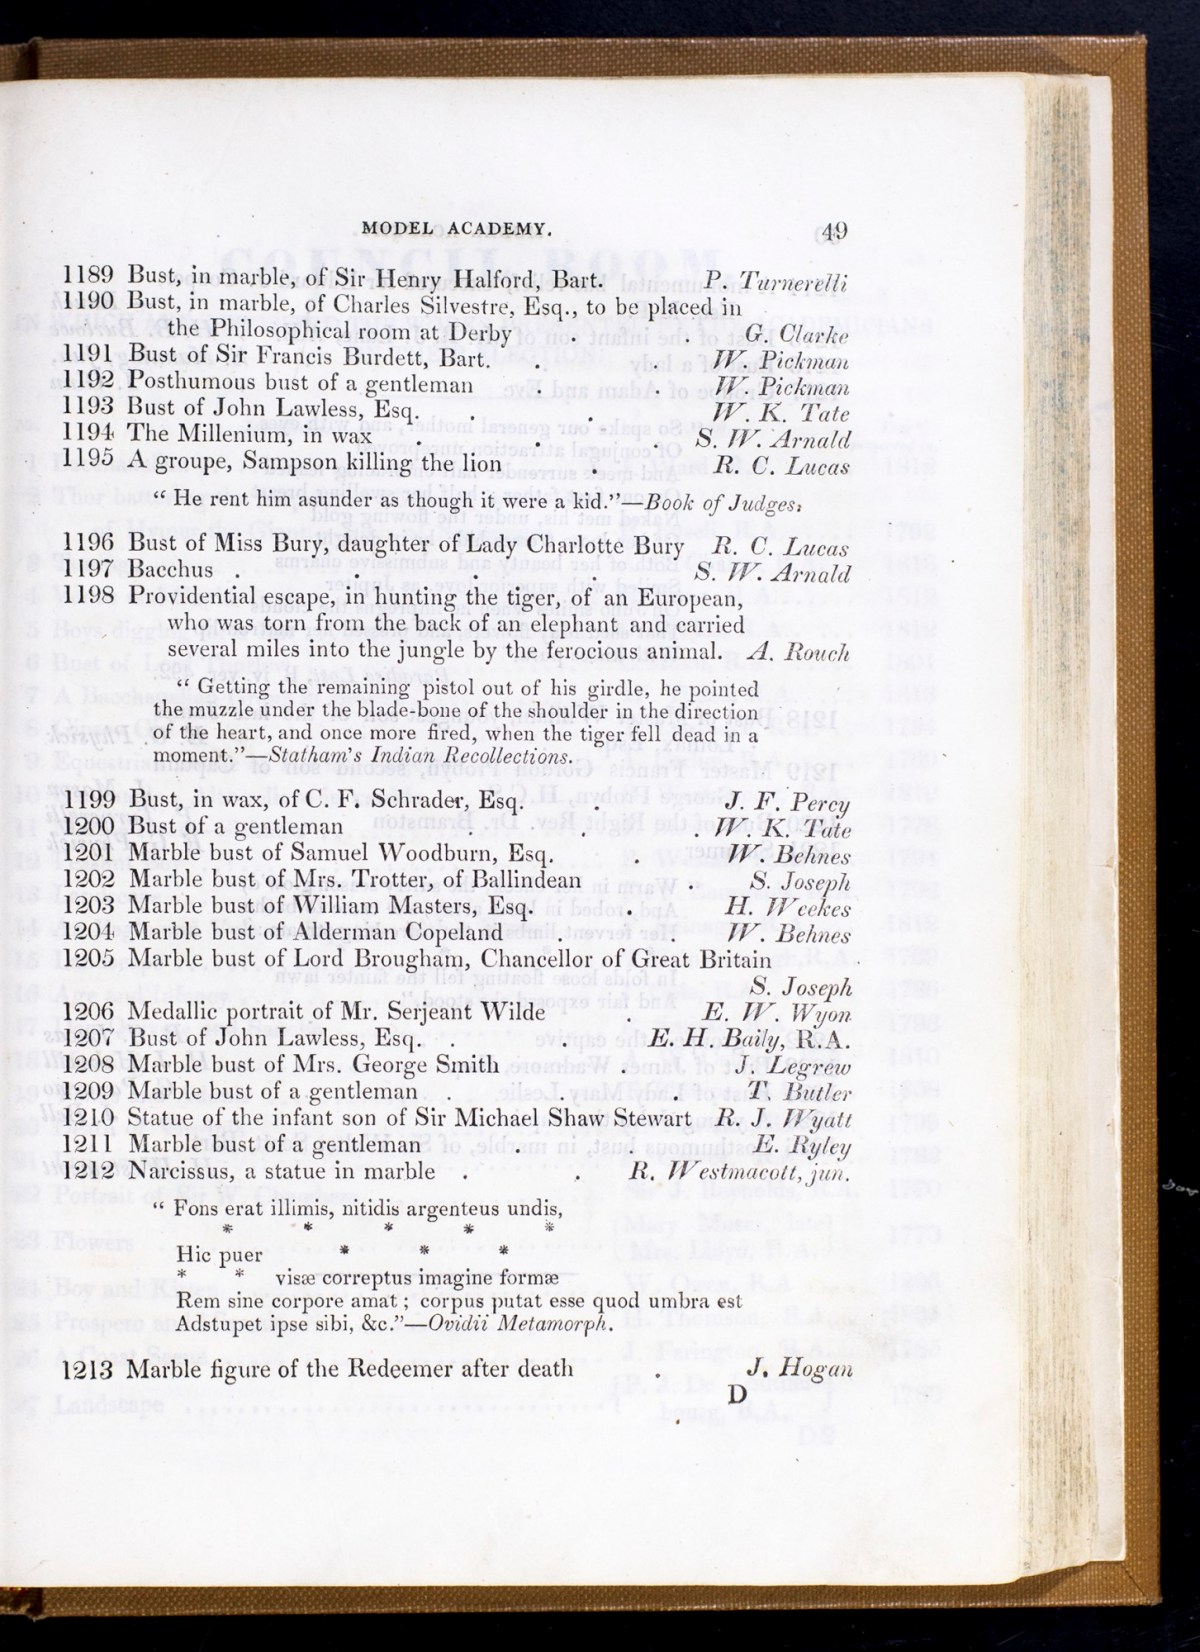 MODEL ACADEMY. 49
1189 Bust, in marble, of Sir Henry Halford, Bart. P. Turnerelli
1190 Bust, in marble, of Charles Silvestre, Esq., to be placed in
the Philosophical room at Derby . . G. Clarke
1191 Bust of Sir Francis Burdett, Bart. . . W. Pickman
1192 Posthumous bust of a gentleman . . W. Pickman
1193 Bust of John Lawless, Esq. . . W. K. Tate
1194 The Millenium, in wax . . . S. W. Arnald
1195 A groupe, Sampson killing the lion . R. C. Lucas
“ He rent him asunder as though it were a kid.”—Book of Judges.
1196 Bust of Miss Bury, daughter of Lady Charlotte Bury R. C. Lucas
1197 Bacchus . . . . S. W. Arnald
1198 Providential escape, in hunting the tiger, of an European,
who was torn from the back of an elephant and carried
several miles into the jungle by the ferocious animal. A. Rouch
“ Getting the remaining pistol out of his girdle, he pointed
the muzzle under the blade-bone of the shoulder in the direction
of the heart, and once more fired, when the tiger fell dead in a
moment.”—Statham's Indian Recollections.
1199 Bust, in wax, of C. F. Schrader, Esq. . J. F. Percy
1200 Bust of a gentleman . . . W. K. Tate
1201 Marble bust of Samuel Woodburn, Esq. . W. Behnes
1202 Marble bust of Mrs. Trotter, of Ballindean . S. Joseph
1203 Marble bust of William Masters, Esq. . H. Weekes
1204 Marble bust of Alderman Copeland . . W. Behnes
1205 Marble bust of Lord Brougham, Chancellor of Great Britain
S. Joseph
1206 Medallic portrait of Mr. Serjeant Wilde . E. W. Wyon
1207 Bust of John Lawless, Esq. . . E. H. Baily, R.A.
1208 Marble bust of Mrs. George Smith . J. Legrew
1209 Marble bust of a gentleman . . . T. Butler
1210 Statue of the infant son of Sir Michael Shaw Stewart R. J. Wyatt
1211 Marble bust of a gentleman . . E. Ryley
1212 Narcissus, a statue in marble . . R. Westmacott, jun.
“ Fons erat illimis, nitidis argenteus undis,
* * * * *
Hic puer * * *
* * visæ correptus imagine formæ
Rem sine corpore amat ; corpus putat esse quod umbra est
Adstupet ipse sibi, &c.”—Ovidii Metamorph.
1213 Marble figure of the Redeemer after death . J. Hogan
D